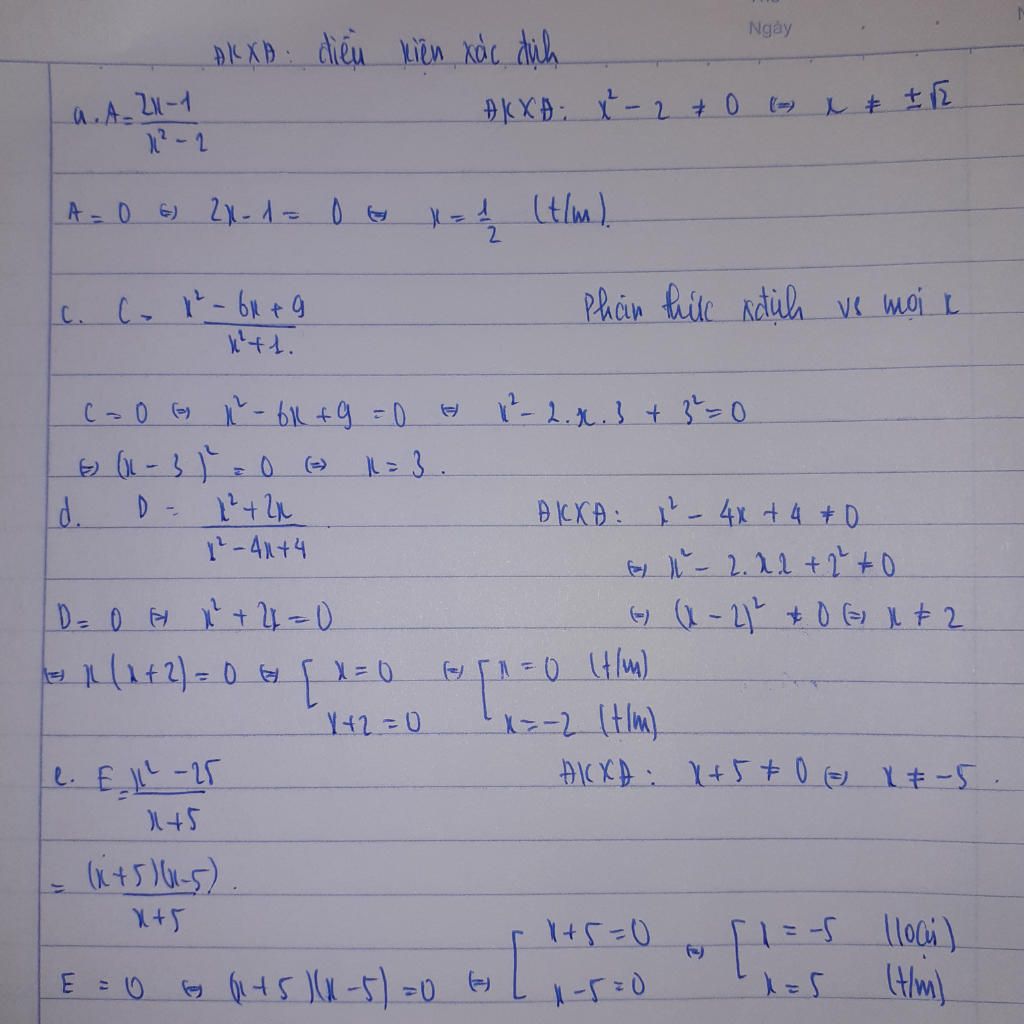 Ngày
ĐKXĐ: điều kiện xác định
a. A = (2x-1)/(x² - 2) ĐKXĐ: x² - 2 ≠ 0 ⇔ x ≠ ±√2
A = 0 ⇔ 2x - 1 = 0 ⇔ x = 1/2 (t/m).
c. C = (x² - 6x + 9)/(x² + 1). Phân thức xđịnh vs mọi x
C = 0 ⇔ x² - 6x + 9 = 0 ⇔ x² - 2.x.3 + 3² = 0
⇔ (x - 3)² = 0 ⇔ x = 3.
d. D = (x² + 2x)/(x² - 4x + 4) ĐKXĐ: x² - 4x + 4 ≠ 0
⇔ x² - 2.x2 + 2² ≠ 0
D = 0 ⇔ x² + 2x = 0 ⇔ (x - 2)² ≠ 0 ⇔ x ≠ 2
⇔ x(x + 2) = 0 ⇔ [ x = 0 ⇔ [ x = 0 (t/m)
x + 2 = 0 x = -2 (t/m)
e. E = (x² - 25)/(x + 5) ĐKXĐ: x + 5 ≠ 0 ⇔ x ≠ -5.
= (x + 5)(x - 5)/(x + 5).
E = 0 ⇔ (x + 5)(x - 5) = 0 ⇔ [ x + 5 = 0 ⇔ [ x = -5 (loại)
x - 5 = 0 x = 5 (t/m)